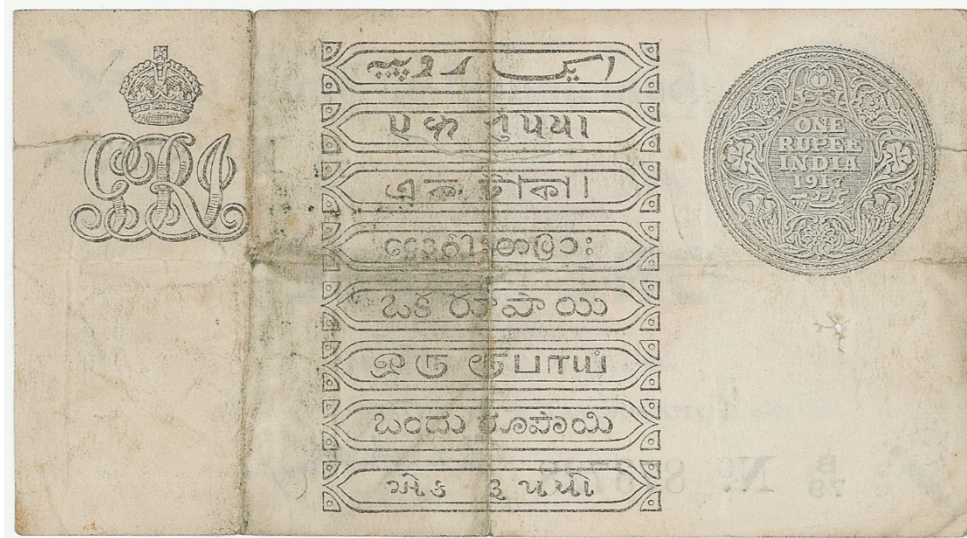 GRI
ایک روپیہ
एक रुपया
এক টাকা।
ఒక రూపాయి
ஒரு ரூபாய்
ಒಂದು ರೂಪಾಯಿ
એક રૂપયો
ONE
RUPEE
INDIA
1917